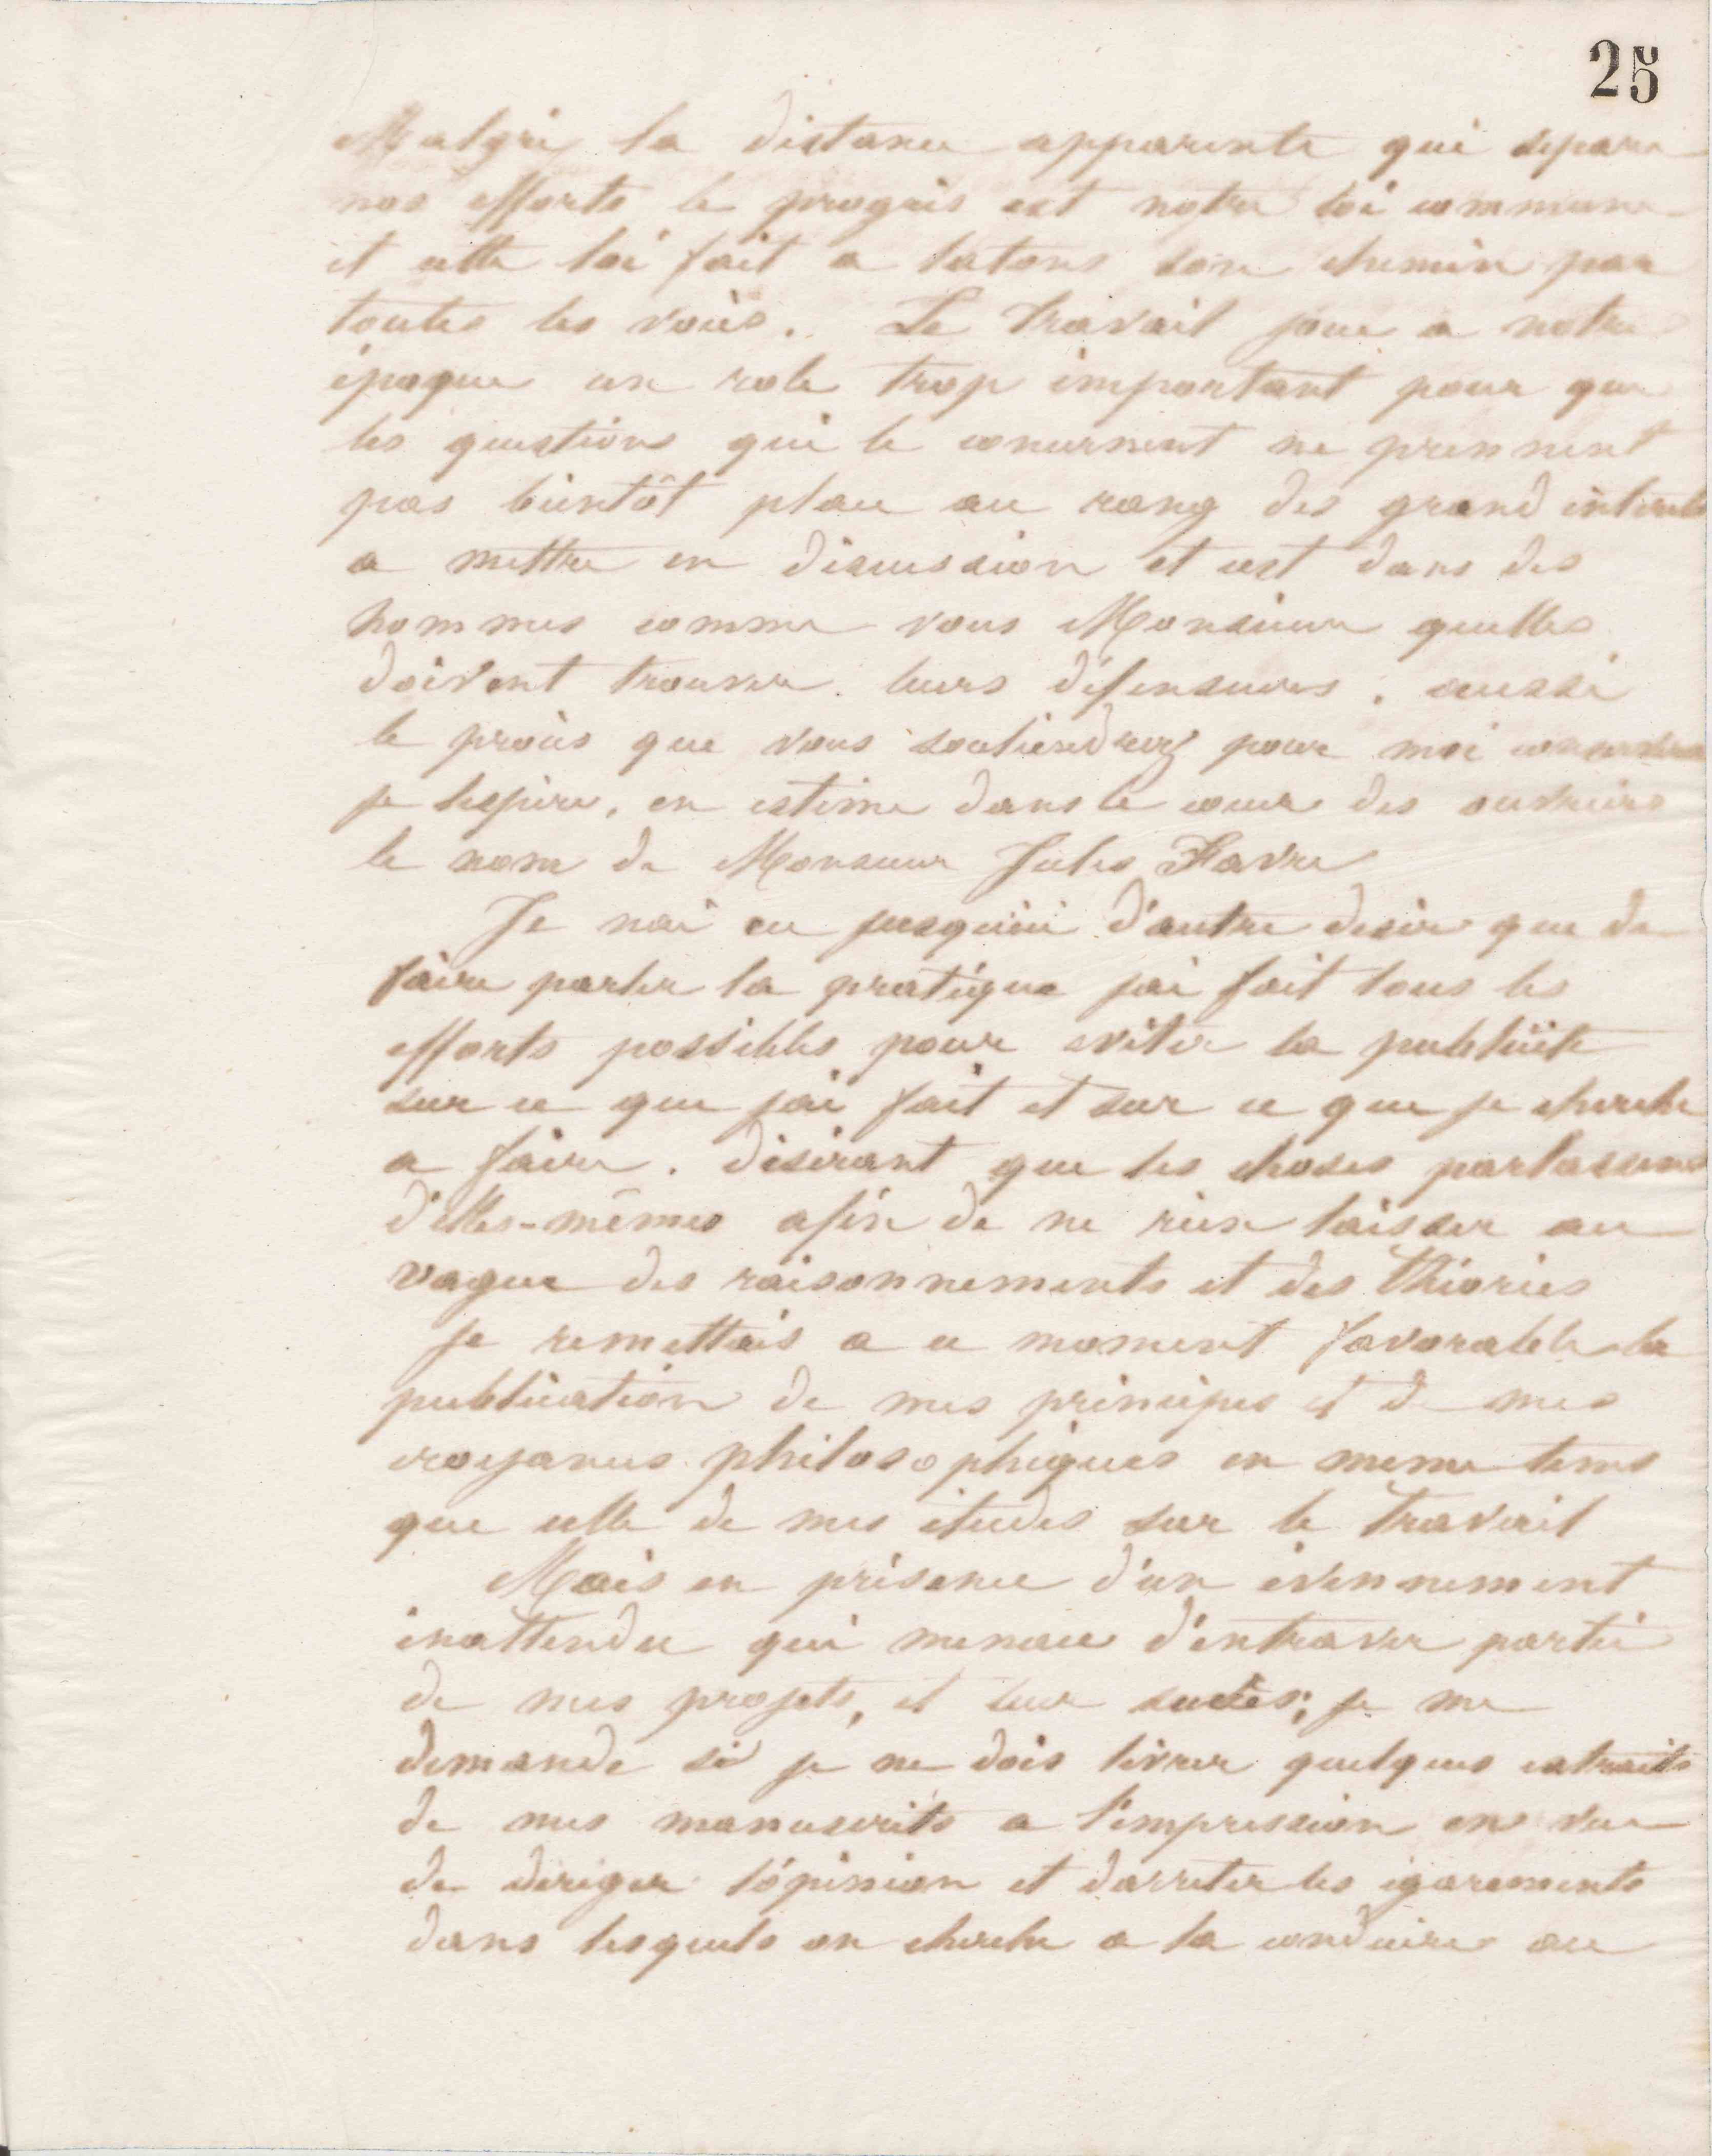 25
Malgré la distance apparente qui separe
nos efforts le progrès est notre loi commune
et cette loi fait a tatons son chemin par
toutes les voies. Le travail joue a notre
époque un role trop important pour que
les questions qui le concernent ne prennent
pas bientôt place au rang des grand intérêts
a mettre en discussion et cest dans des
hommes comme vous Monsieur quelles
doivent trouver leurs défenseurs. aussi
le procès que vous soutiendrez pour moi conservera
je lespère, en estime dans le cœur des ouvriers
le nom de Monsieur Jules Favre
Je nai eu jusquici d'autre desir que de
faire parler la pratique jai fait tous les
efforts possibles pour eviter la publicité
sur ce que jai fait et sur ce que je cherche
a faire. désirant que les choses parlassent
d'elles-mêmes afin de ne rien laisser au
vague des raisonnements et des théories
je remettais a ce moment favorable la
publication de mes principes et de mes
croyances philosophiques en meme tems
que celle de mes études sur le travail
Mais en présence d'un évennement
inattendu qui menace d'entraver partie
de mes projets, et leur succès; je me
demande si je ne dois livrer quelques extraits
de mes manuscrits a l'impression en vue
de diriger l'opinion et darreter les égarements
dans lesquels on cherche a la conduire au